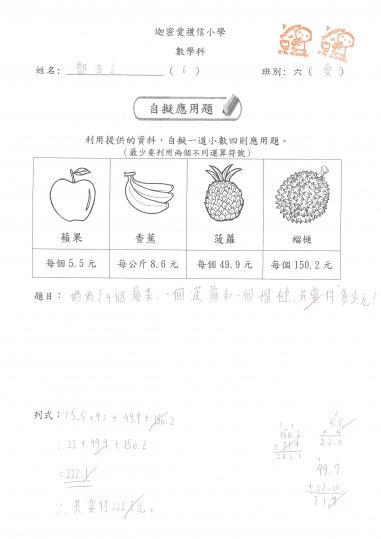 迦密愛禮信小學
數學科
姓名: ( 6 ) 班別: 六 ( 愛 )
自擬應用題
利用提供的資料,自擬一道小數四則應用題。
(最少要利用兩個不同運算符號)
蘋果 香蕉 菠蘿 榴槤
每個 5.5 元 每公斤 8.6 元 每個 49.9 元 每個 150.2 元
題目: 媽媽了4個蘋果、一個菠蘿和一個榴槤,共要付多少元?
列式: (5.5×4) + 49.9 + 150.2
= 22 + 49.9 + 150.2
= 222.1
∴ 共要付222.1元。
150.2
+ 71.9
222.1
5.5
× 4
22.0
49.9
+ 22.0
71.9